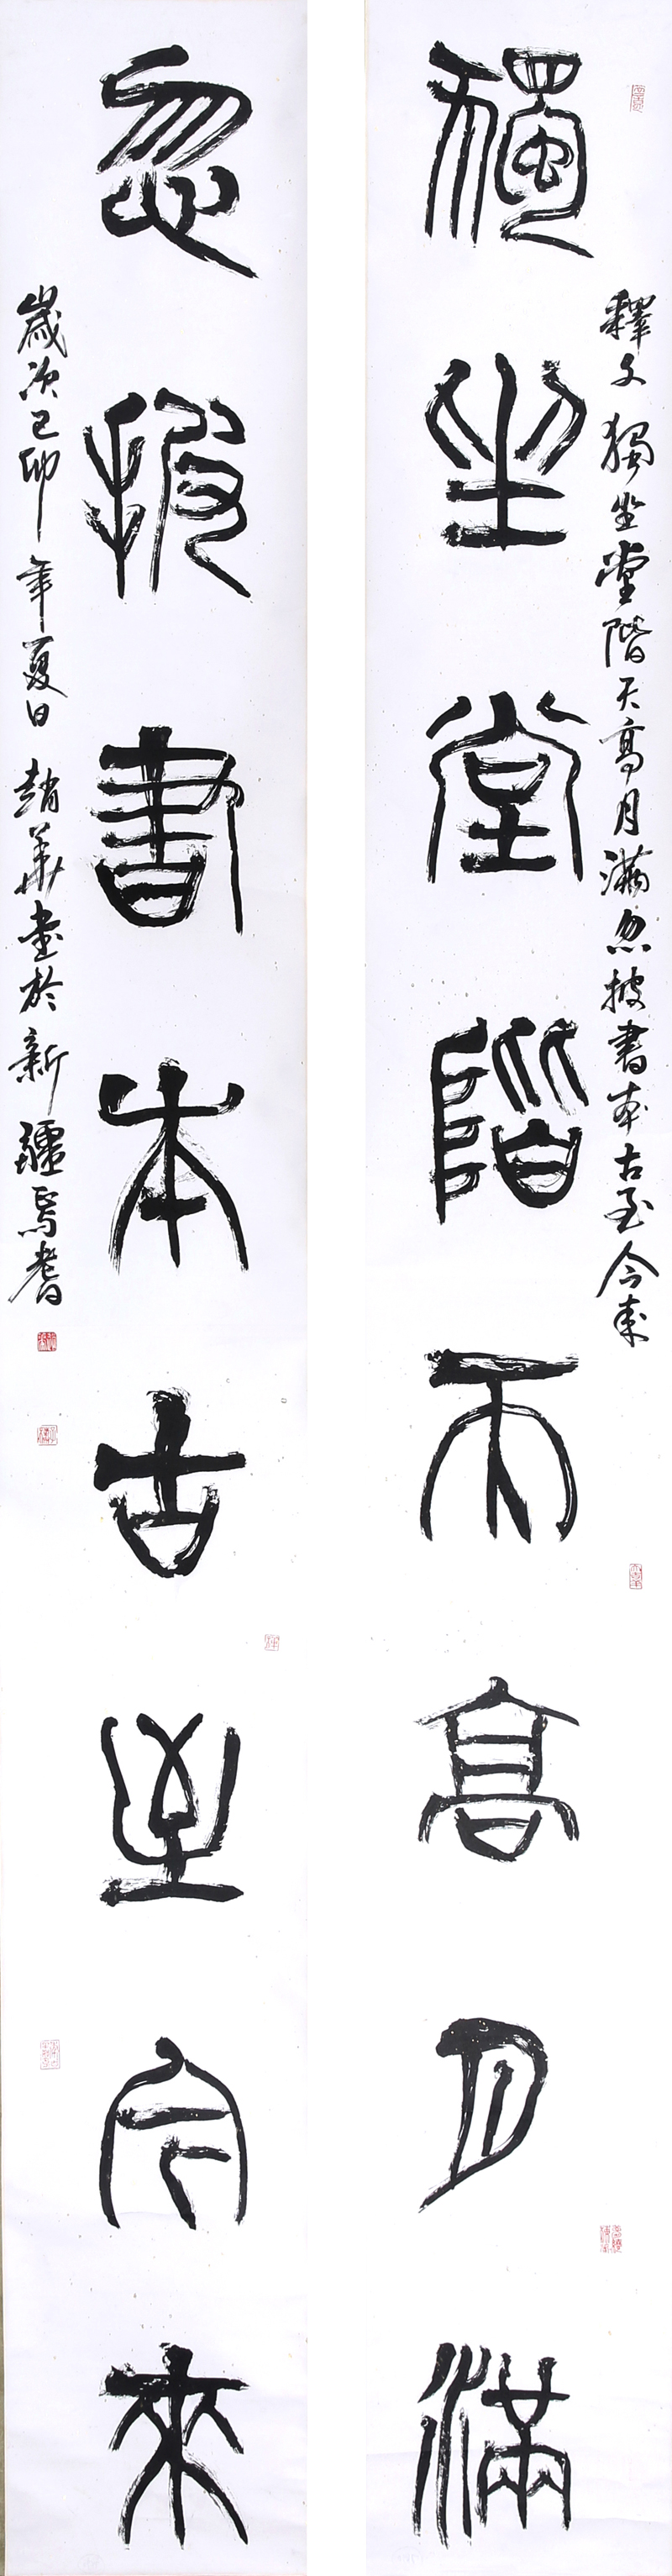 釋文獨坐堂階天高月滿忽披書本古至今來
獨坐堂階天高月滿
忽披書本古至今來
歲次己卯年夏日趙華書於新疆焉耆